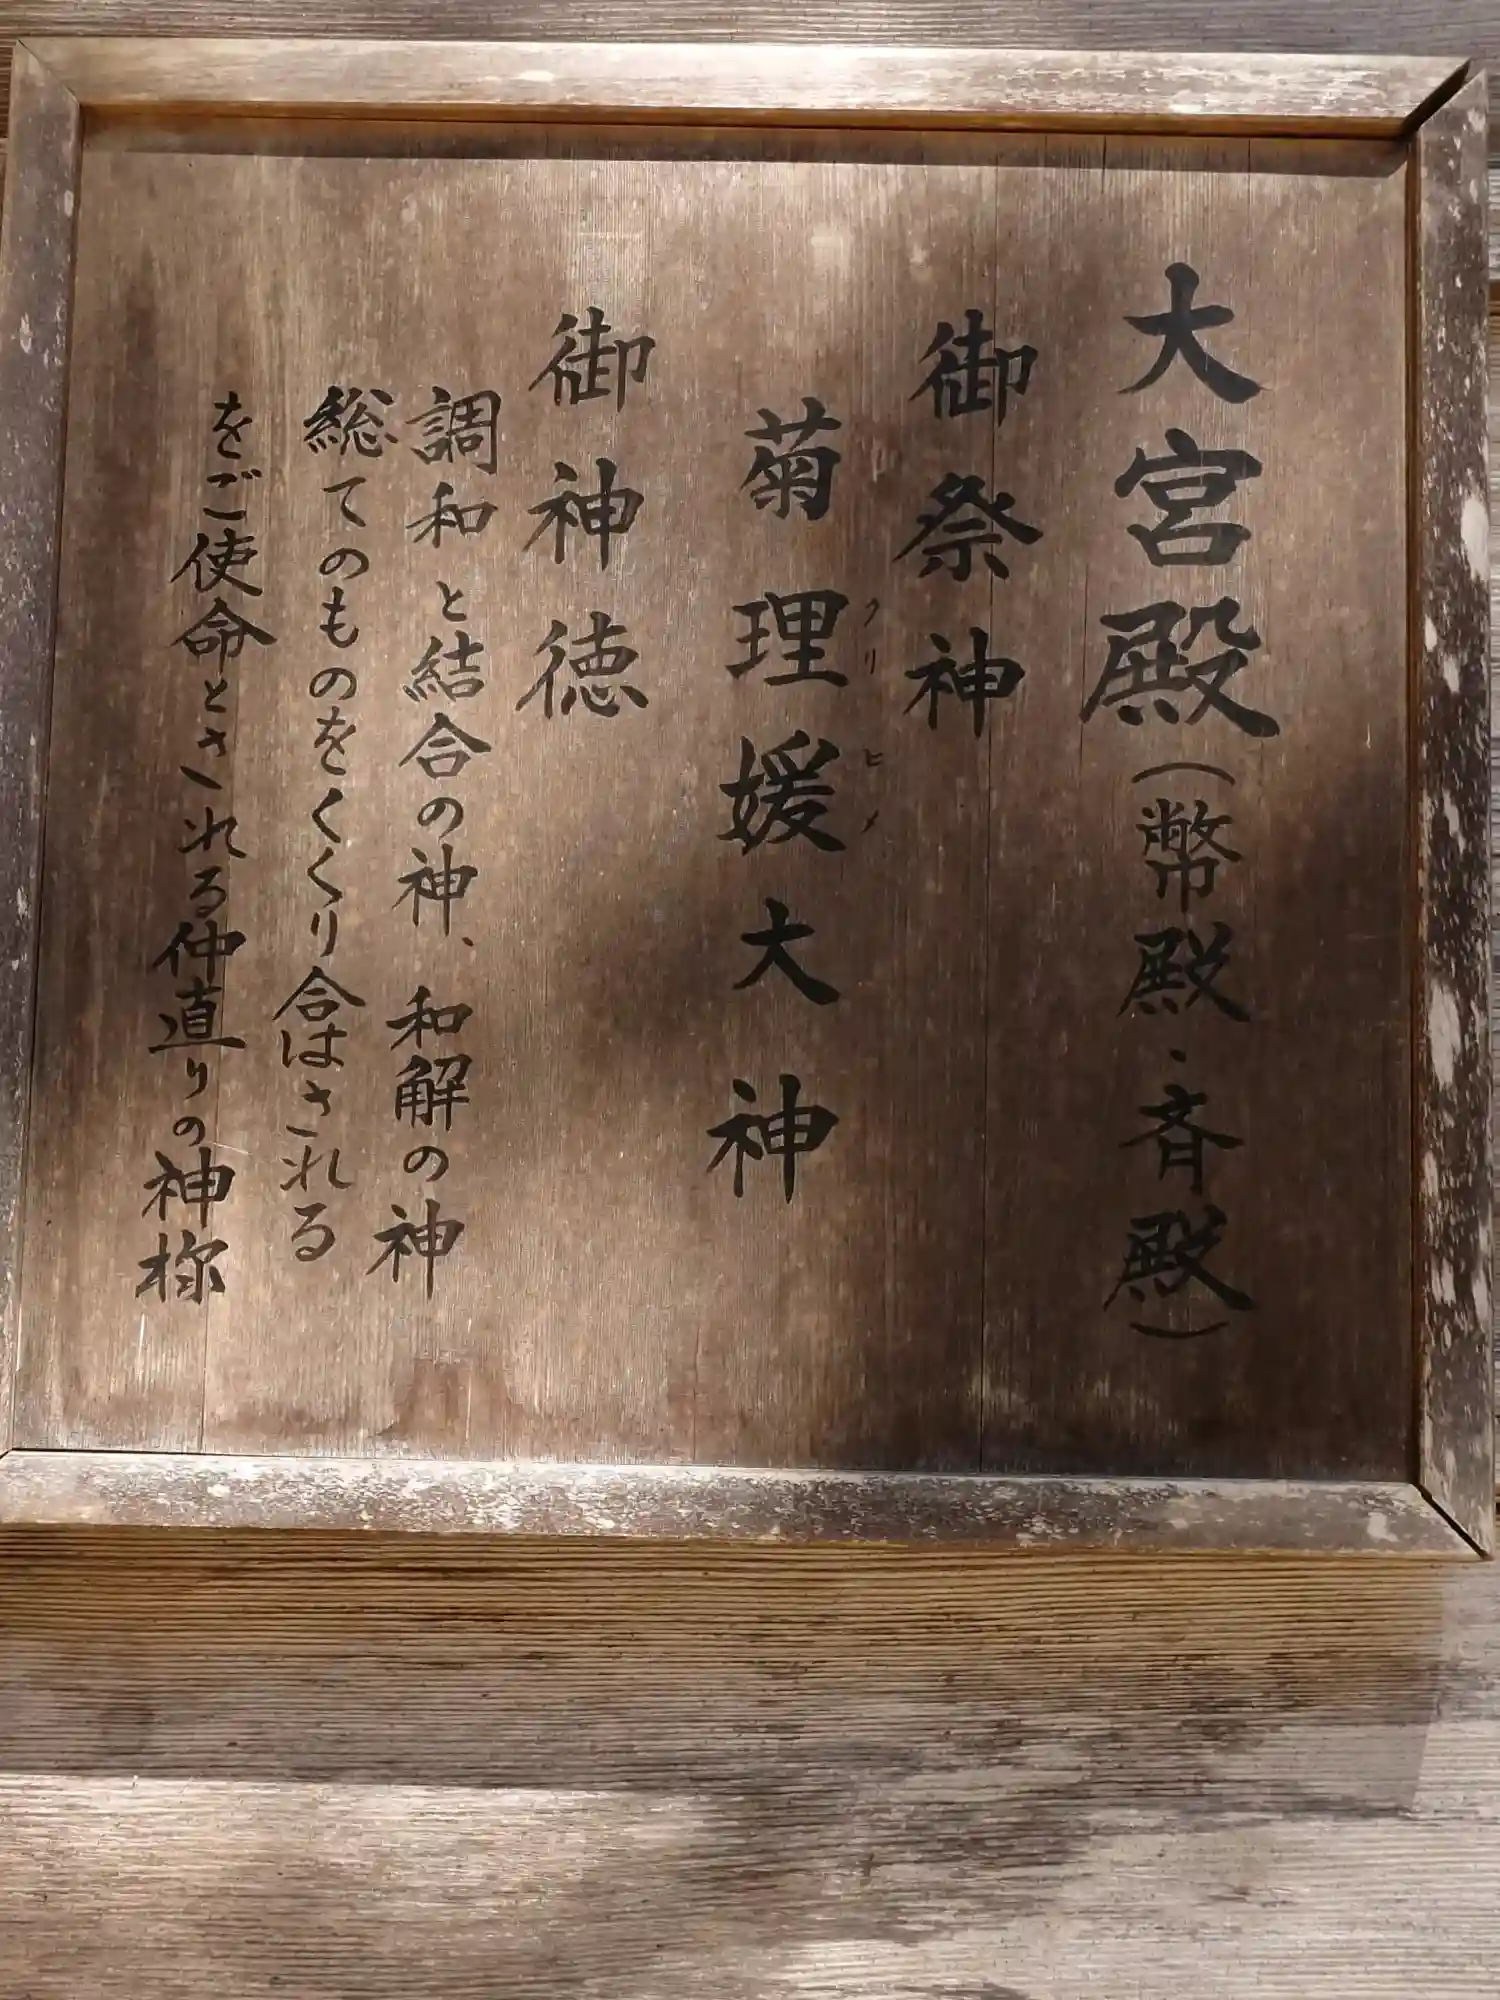 大宮殿(幣殿・斉殿)
御祭神
菊理媛大神
クリヒメ
御神徳
調和と結合の神、和解の神
総てのものをくくり合はされる
をご使命とされる仲直りの神様